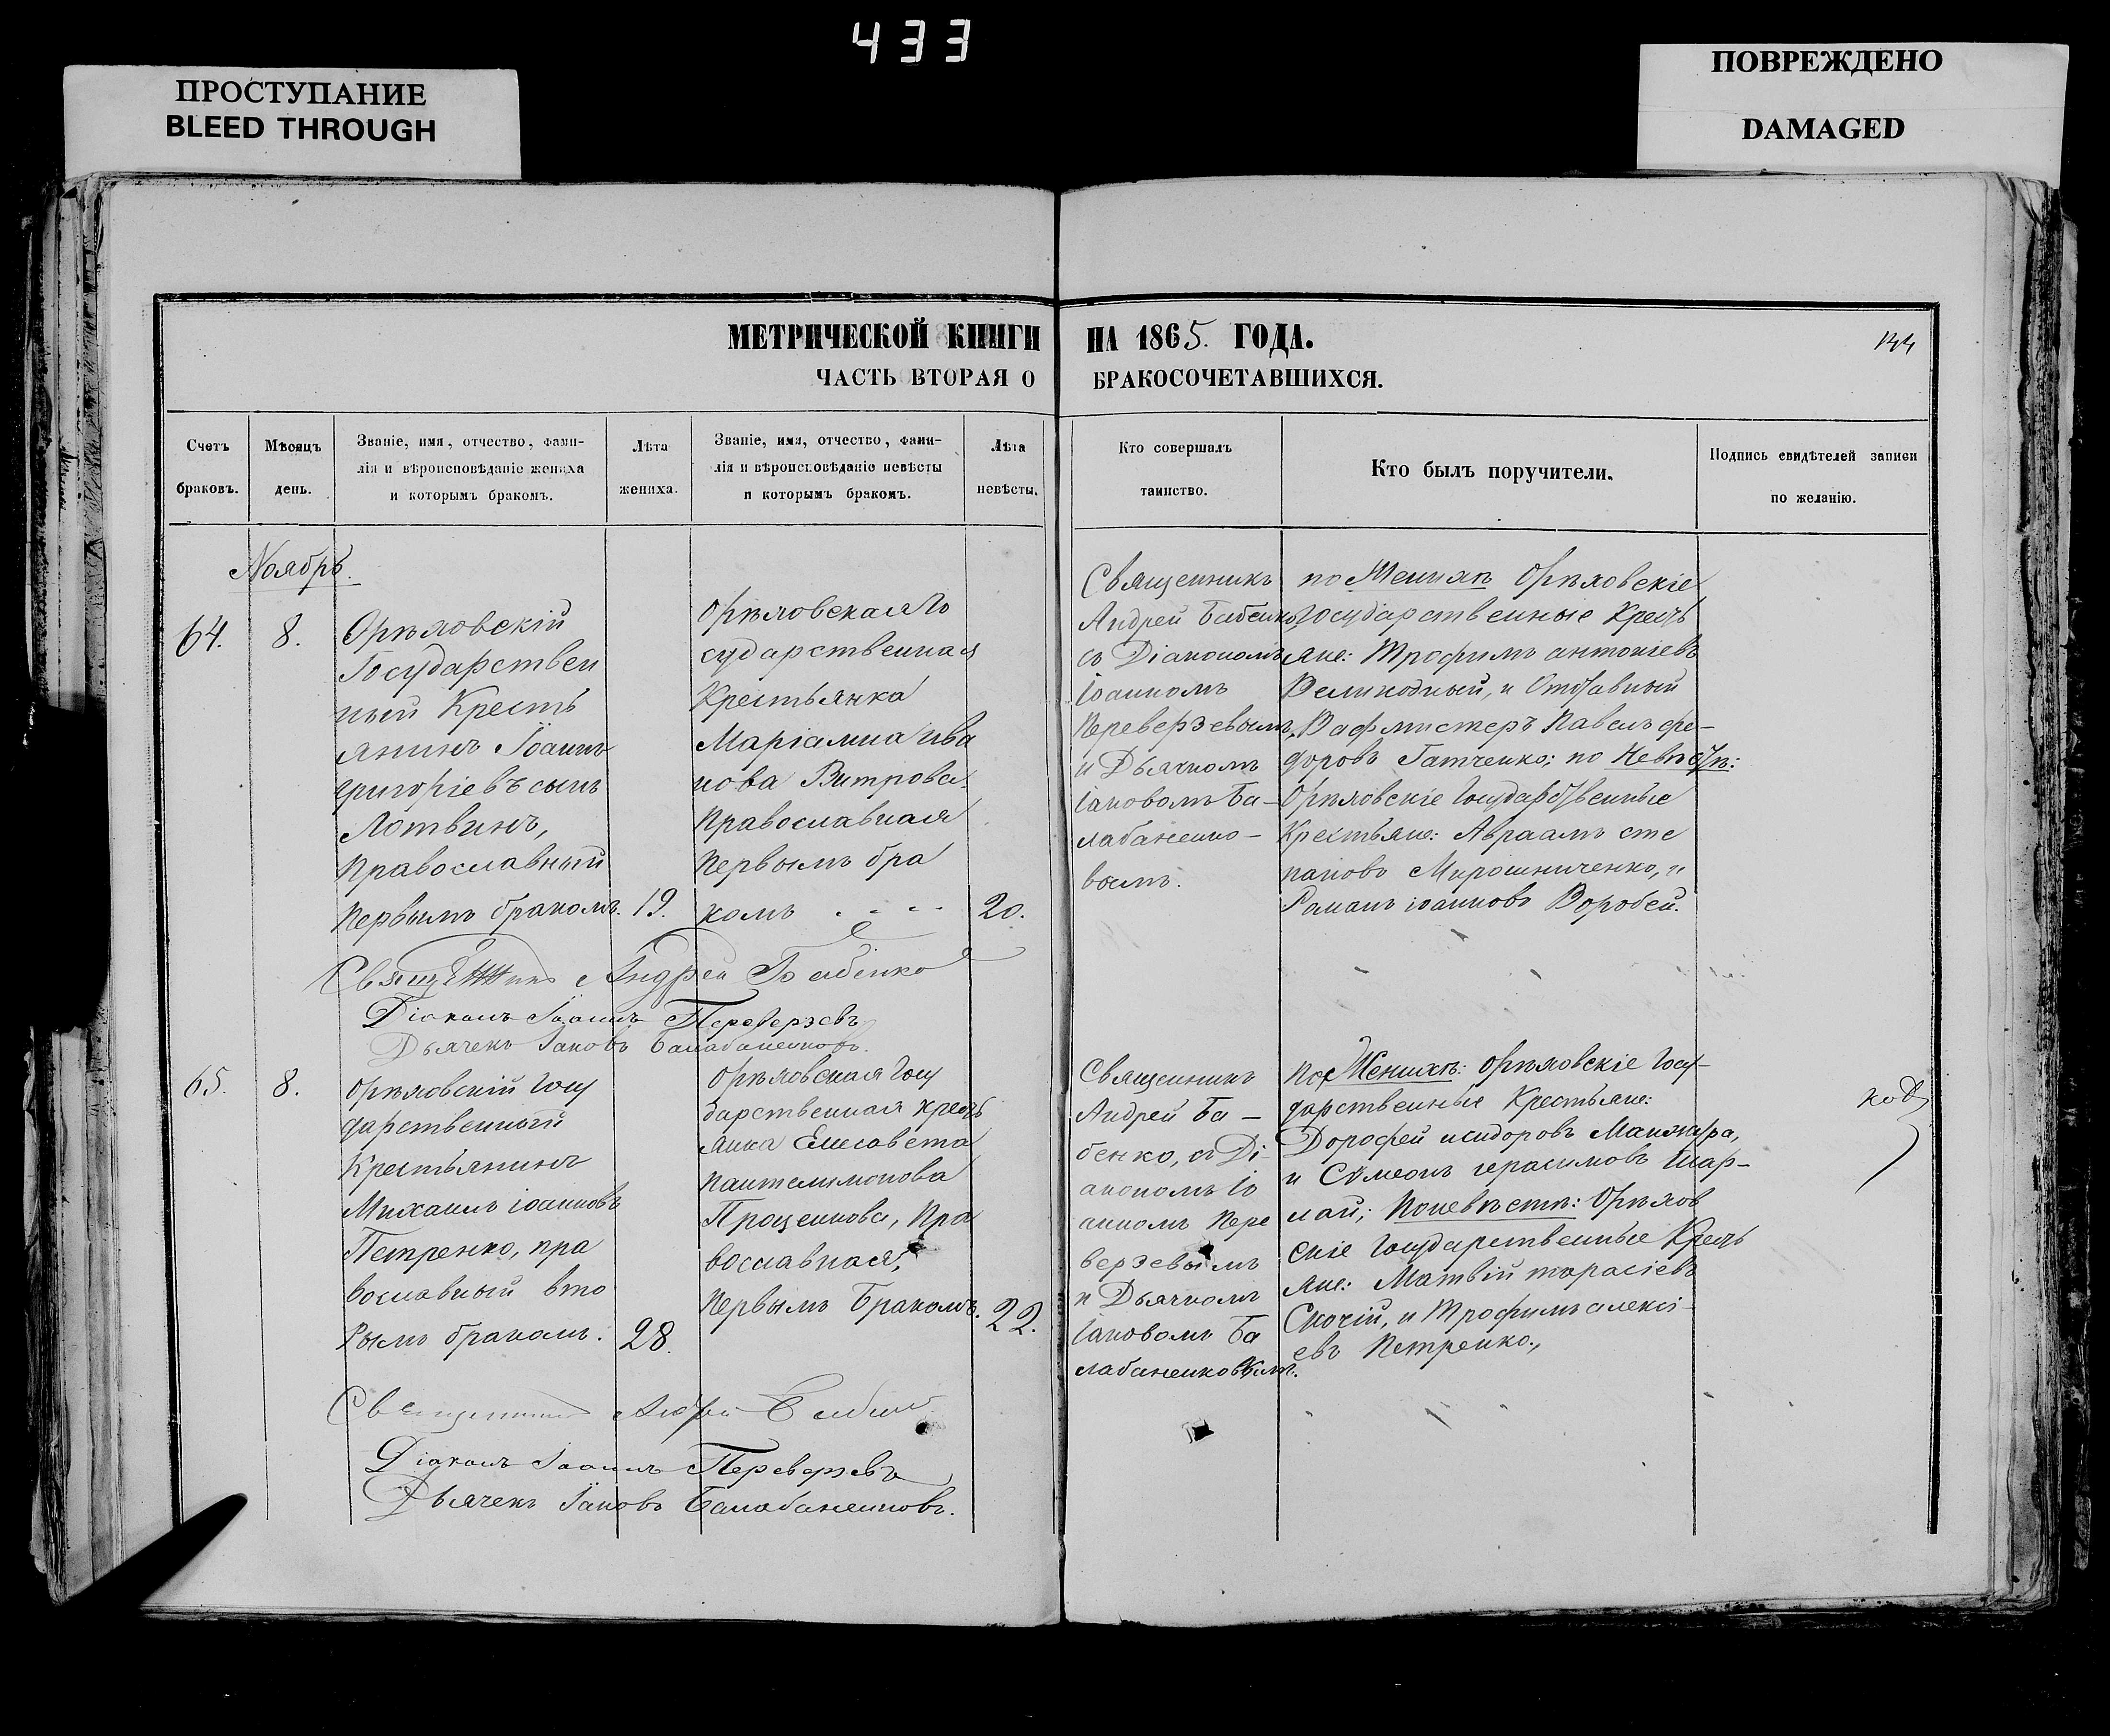 433
ПРОСТУПАНИЕ
BLEED THROUGH
ПОВРЕЖДЕНО
DAMAGED
МЕТРИЧЕСКОЙ КНИГИ НА 1865. ГОДА.
144
ЧАСТЬ ВТОРАЯ О БРАКОСОЧЕТАВШИХСЯ.
Счетъ
браковъ.
Мѣсяцъ
день.
Званіе, имя, отчество, фами-
лія и вѣроисповѣданіе жениха
и которымъ бракомъ.
Лѣта
жениха.
Званіе, имя, отчество, фами-
лія и вѣроисповѣданіе невѣсты
и которымъ бракомъ.
Лѣта
невѣсты.
Кто совершалъ
таинство.
Кто былъ поручители.
Подпись свидѣтелей записи
по желанію.
Ноябрь.
64.
8.
Орѣховскій
Государствен
ный Кресть
янинъ Іоаннъ
григоріевъ сынъ
Лотвинъ,
Православный
Первымъ бракомъ.
19.
Орѣховская Го
сударственная
Крестьянка
Маріамна ива
нова Витрова.
Православная
Первымъ бра
комъ
20.
Священникъ
Андрей Бабенко,
съ Діакономъ
Іоанномъ
Переверзевымъ,
и Дьячкомъ
Іаковомъ Ба-
лабаненко-
вымъ.
по Женихѣ Орѣховскіе
Государственные Кресть
яне: Трофимъ антоніевъ
Великодный, и Отставный
Вафмистеръ Павелъ фе-
доровъ Гатченко; по Невѣстѣ:
Орѣховскіе Государственные
Крестьяне: Авраамъ сте
пановъ Мирошниченко, и
Романъ іоанновъ Воробей.
Священникъ Андрей Бабенко
Діаконъ Іоаннъ Переверзевъ
Дьячекъ Іаковъ Балабаненковъ.
65.
8.
Орѣховскій Госу
дарственный
Крестьянинъ
Михаилъ іоанновъ
Петренко, пра
вославный вто
рымъ бракомъ.
28.
Орѣховская Госу
дарственная кресть
янка Елисавета
пантелимонова
Проценкова, Пра
вославная,
Первымъ Бракомъ.
22.
Священникъ
Андрей Ба-
бенко, съ Ді-
акономъ Іо
анномъ Пере
верзевымъ
и Дьячкомъ
Іаковомъ Ба
лабаненковымъ.
по Женихѣ: Орѣховскіе Госу-
дарственные Крестьяне:
Дорофей исидоровъ Манжара,
и Сѵмеонъ герасимовъ Шар-
лай; По невѣстѣ: Орѣхов
скіе Государственные Кресть
яне: Матвій тарасіевъ
Скочій, и Трофимъ алексі-
евъ Петренко.,
Священникъ Андрей Бабенко
Діаконъ Іоаннъ Переверзевъ
Дьячекъ Іаковъ Балабаненковъ.